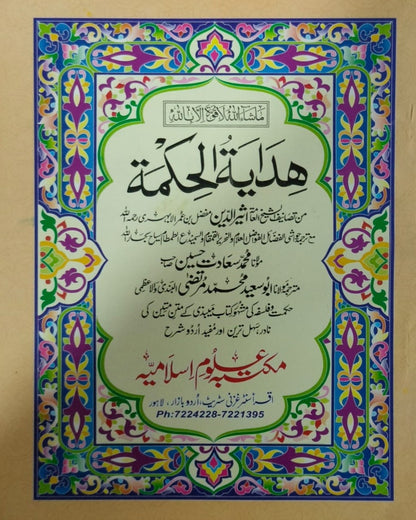 ماشاء اللہ لا قوۃ الا باللہ
هداية الحكمة
من تصانيف الشيخ العلامة اثير الدين مفضل بن عمر الابهری رحمه الله
مع ترجمہ و حواشی
مولانا محمد سعادت حسین صاحب
مترجمہ مولانا ابو سعید محمد مرتضیٰ
حکمت و فلسفہ کی مشہور کتاب میبذی کے متن متین کی
نادر سہل ترین اور مفید اُردو شرح
مکتبہ علوم اسلامیہ
اقرأ سنٹر غزنی سٹریٹ، اُردو بازار، لاہور
Ph:7224228-7221395